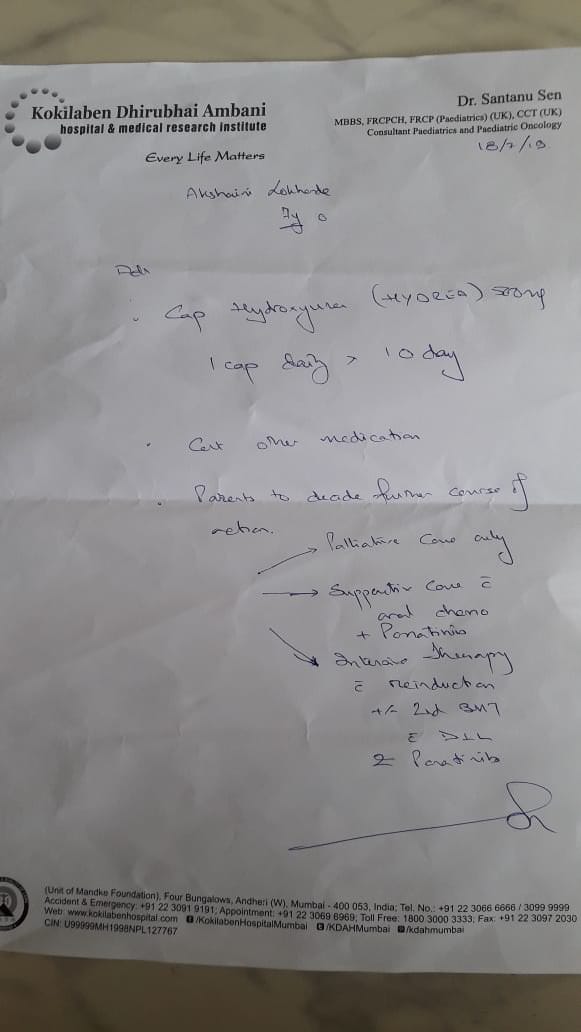 Kokilaben Dhirubhai Ambani
hospital & medical research institute
Every Life Matters
Dr. Santanu Sen
MBBS, FRCPCH, FRCP (Paediatrics) (UK), CCT (UK)
Consultant Paediatrics and Paediatric Oncology
18/7/19
7y
Cap Hydroxyurea (HYDREA) 500mg
1 cap daily > 10 day
other medication
Parents to decide further course of
action.
→ Palliative Care only
→ Supportive Care c̄
oral chemo
+ Ponatinib
→ Intensive Therapy
c̄ reinduction
+/- 2nd BMT
c̄ DLI
& Ponatinib
(Unit of Mandke Foundation), Four Bungalows, Andheri (W), Mumbai - 400 053, India; Tel. No.: +91 22 3066 6666 / 3099 9999
Accident & Emergency: +91 22 3091 9191; Appointment: +91 22 3069 6969; Toll Free: 1800 3000 3333; Fax: +91 22 3097 2030
Web: www.kokilabenhospital.com /KokilabenHospitalMumbai /KDAHMumbai /kdahmumbai
CIN: U99999MH1998NPL127767